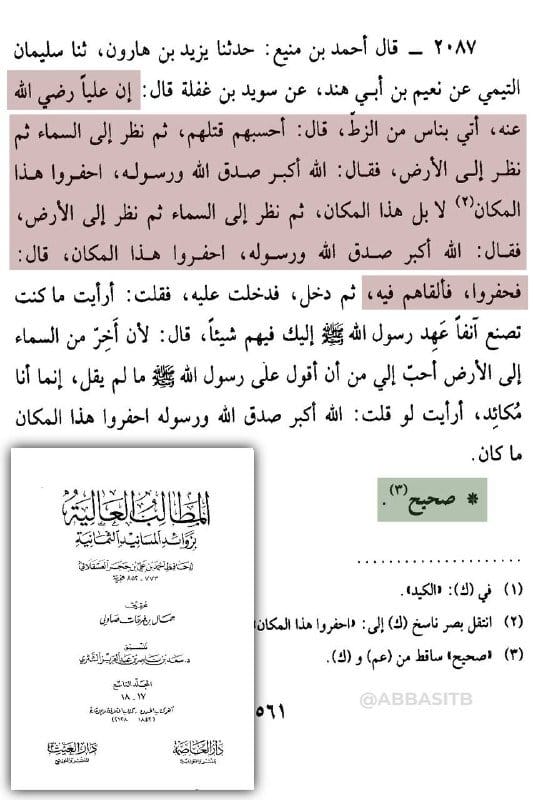 ٢٠٨٧ ــ قال أحمد بن منيع: حدثنا يزيد بن هارون، ثنا سليمان
التيمي عن نعيم بن أبي هند، عن سويد بن غفلة قال: إن علياً رضي الله
عنه، أتي بناس من الزطّ، قال: أحسبهم قتلهم، ثم نظر إلى السماء ثم
نظر إلى الأرض، فقال: الله أكبر صدق الله ورسوله، احفروا هذا
المكان(٢) لا بل هذا المكان، ثم نظر إلى السماء ثم نظر إلى الأرض،
فقال: الله أكبر صدق الله ورسوله، احفروا هذا المكان، قال:
فحفروا، فألقاهم فيه، ثم دخل، فدخلت عليه، فقلت: أرأيت ما كنت
تصنع آنفاً عَهِد رسول الله ﷺ إليك فيهم شيئاً، قال: لأن أَخِرّ من السماء
إلى الأرض أحبّ إلي من أن أقول على رسول الله ﷺ ما لم يقل، إنما أنا
مُكائِد، أرأيت لو قلت: الله أكبر صدق الله ورسوله احفروا هذا المكان
ما كان.
* صحيح(٣).
(١) في (ك): «الكيد».
(٢) انتقل بصر ناسخ (ك) إلى: «احفروا هذا المكان
(٣) «صحيح» ساقط من (عم) و (ك).
٥٦١
@ABBASITB
المطالب العالية
بزوائد المسانيد الثمانية
للحافظ أحمد بن علي بن حجر العسقلاني
٧٧٣ - ٨٥٢ هجرية
تحقيق
جمال بن فرحات صاولي
تنسيق
د. سعد بن ناصر بن عبد العزيز الشثري
المجلد التاسع
١٧ - ١٨
دار العاصمة
للنشر والتوزيع
دار الغيث
للنشر والتوزيع